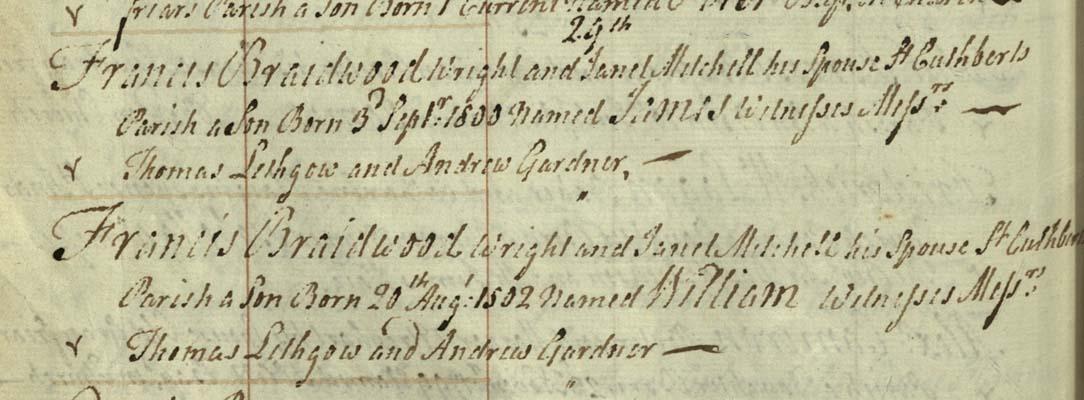 friars Parish a Son Born 1 Current Named
29th
Francis Braidwood Wright and Janet Mitchell his Spouse St Cuthberts
Parish a Son Born 3d Septr. 1800 Named James Witnesses Messrs. —
Thomas Lethgow and Andrew Gardner, —
"
Francis Braidwood Wright and Janet Mitchell his Spouse St Cuthberts
Parish a Son Born 20th Augt. 1802 Named William Witnesses Messrs.
Thomas Lethgow and Andrew Gardner —
"